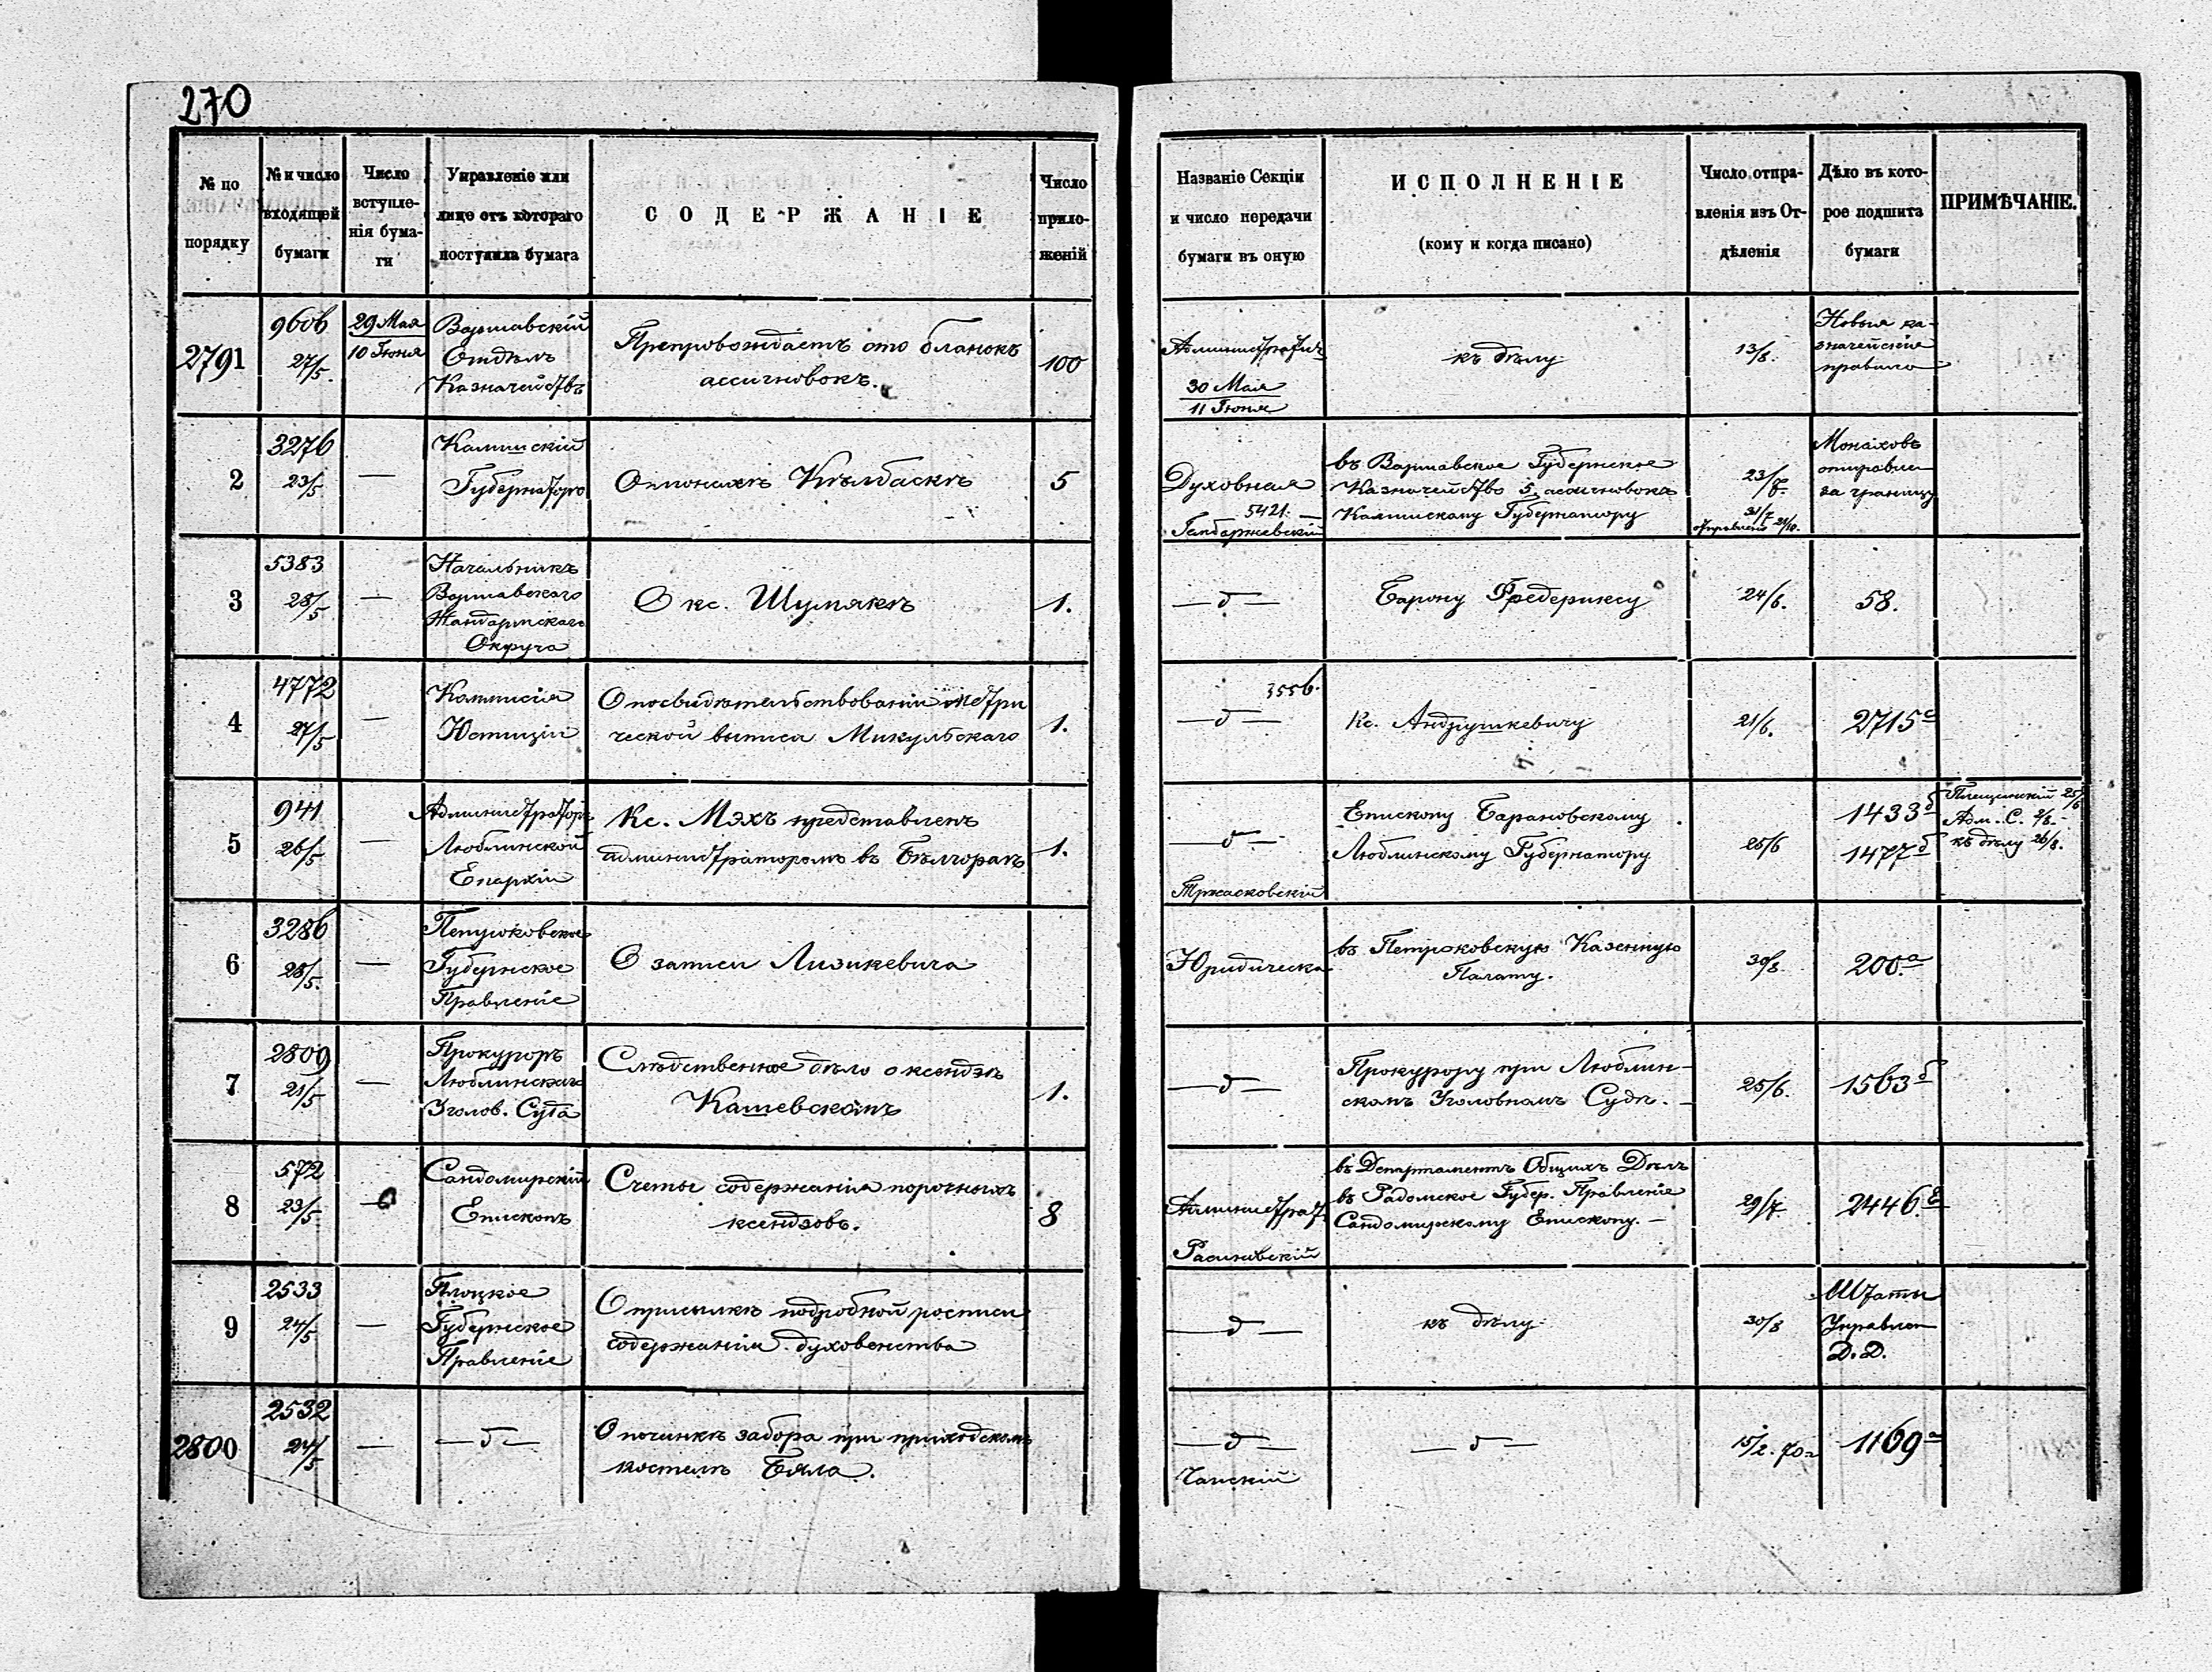 270
№ по порядку
№ и число входящей бумаги
Число вступле-
нія бума-
ги
Управленіе или
лице отъ котораго
поступила бумага
СОДЕРЖАНІЕ
Число
прило-
женій
Названіе Секціи
и число передачи
бумаги въ оную
ИСПОЛНЕНІЕ
(кому и когда писано)
Число отпра-
вленія изъ От-
дѣленія
Дѣло въ кото-
рое подшита
бумаги
ПРИМѢЧАНІЕ.
2791
9606
27/5.
29 Мая
10 Іюня
Варшавскій
Отдѣлъ
Казначействъ
Препровождаетъ сто бланокъ
ассигновокъ.
100
30 Мая
11 Іюня
къ дѣлу
13/8.
Новыя ка-
значейскія
правила
2
3276
23/5
—
Калишскій
Губернаторъ
5
Духовная
5421.
въ Варшавское Губернское
Казначейство 5 ассигновокъ
Калишскому Губернатору
23/7.
31/7
отправлено 21/10.
Монаховъ
отправлен
за границу
3
5383
28/5.
—
Начальникъ
Варшавскаго
Жандармскаго
Округа
О кс. Шумякѣ
1.
— д —
Барону Фредериксу
24/6.
58.
4
4772
27/5
—
Коммисія
Юстиціи
О посвидѣтельствованіи метри
ческой выписи Микульскаго
1.
3556.
— д —
Кс. Андрушкевичу
21/6.
2715 с
5
941
26/5
—
Администраторъ
Люблинской
Епархіи
Кс. Мэхъ представленъ
администраторомъ въ Бѣлгораѣ
1.
— д —
Тржасковскій
Епископу Барановскому
Люблинскому Губернатору
25/6
1433 б
1477 б
25/6
Адм. С. 2/8. -
къ дѣлу 26/8.
6
3286
28/5.
—
Петроковское
Губернское
Правленіе
О записи Лизикевича
Юридическа
въ Петроковскую Казенную
Палату.
30/8.
200. а
7
2809
21/5
—
Прокуроръ
Люблинскаго
Уголов. Суда
Слѣдственное дѣло о ксендзѣ
Кашевскомъ
1.
— д —
Прокурору при Люблин-
скомъ Уголовномъ Судѣ. —
25/6.
1563 б
8
572
23/5.
—
Сандомирскій
Епископъ
Счеты содержанія порочныхъ
ксендзовъ.
8
въ Департаментъ Общихъ Дѣлъ
въ Радомское Губер. Правленіе
Сандомирскому Епископу. —
29/7.
2446.
9
2533
24/5
—
Плоцкое
Губернское
Правленіе
О присылкѣ подробной росписи
содержанія духовенства
— д —
къ дѣлу
30/8
Штаты
Управлен
Д. Д.
2800
2532
24/5
—
— д —
О починкѣ забора при приходскомъ
костелѣ Бяла.
— д —
— д —
15/2. 70 г
1169 а